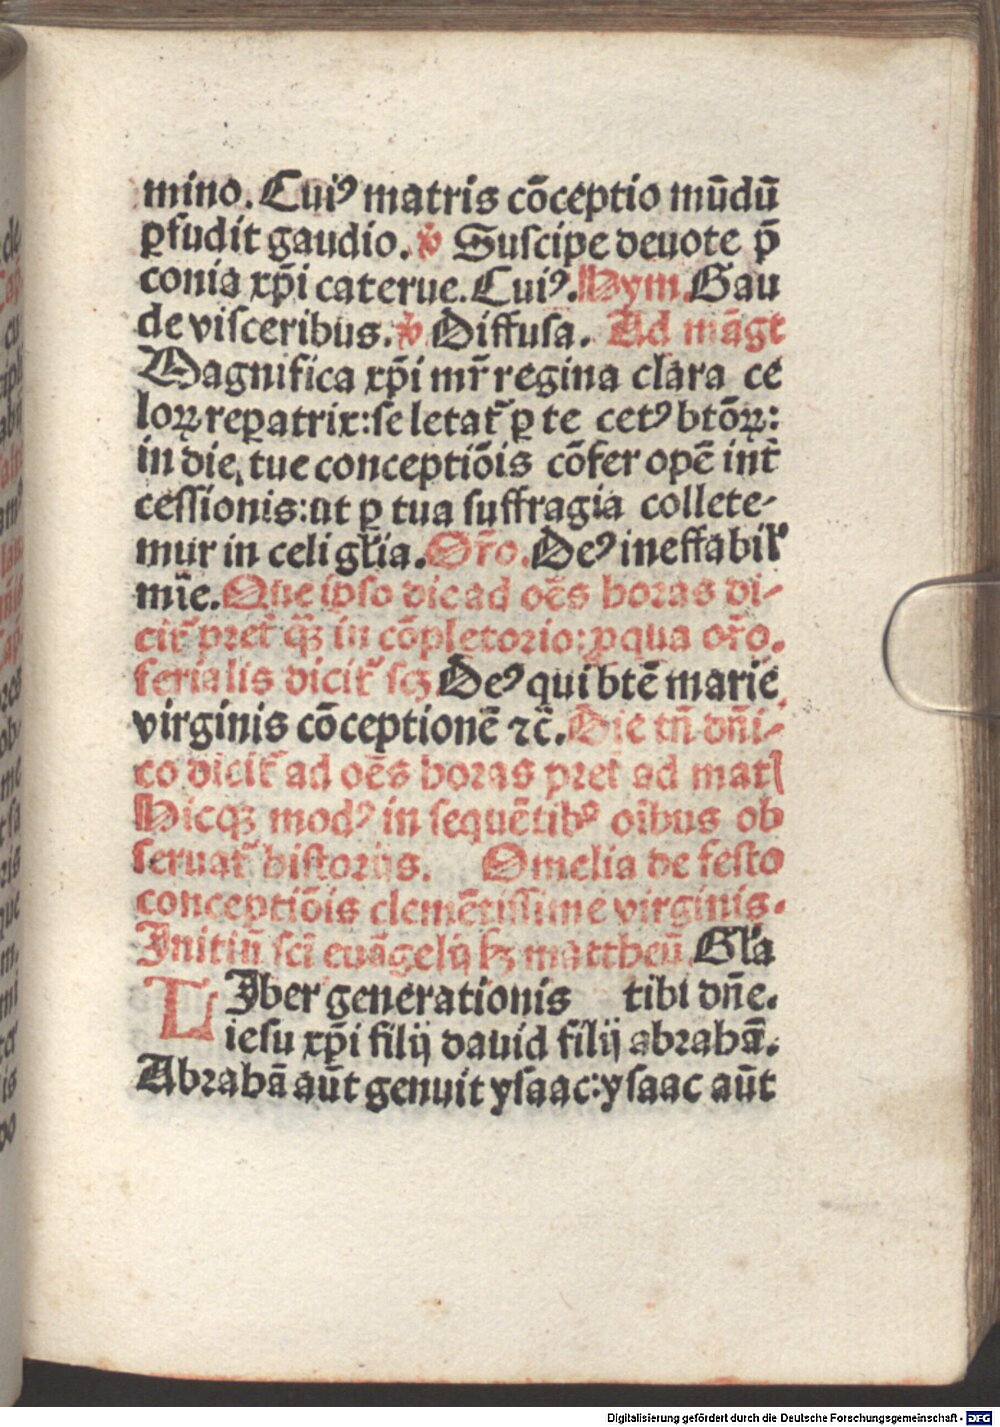 mino. Cuiꝰ matris cōceptio mūdū
ꝑfudit gaudio. ℣ Suscipe deuote p̄
conia xp̄i caterue. Cuiꝰ. Hym. Gau
de visceribus. ℣ Diffusa. Ad māgͭ
Magnifica xp̄i mr̄ regina clara ce
loꝝ repatrix: se letat᷑ ꝑ te cetꝰ btōꝝ:
in die, tue conceptiōis cōfer opē int᷑
cessionis: ut ꝑ tua suffragia collete-
mur in celi gl̄ia. Or̄o. Deꝰ ineffabil᷑
mīe. Que ipso die ad oēs horas di-
cit᷑ pret᷑ qꝫ in cōpletorio: ꝑqua or̄o.
ferialis dicit᷑ scꝫ Deꝰ qui btē marie
virginis cōceptionē ⁊c̄. Die tn̄ dn̄i-
co dicit᷑ ad oēs horas pret᷑ ad matꝭ
Hicqꝫ modꝰ in sequētibꝰ oībus ob
seruat᷑ historijs. Omelia de festo
conceptiōis clemētissime virginis.
Initiū sci̅ euāgelij ẜꝫ mattheū Gl̄a
LIber generationis tibi dn̄e.
iesu xp̄i filij dauid filij abrahā.
Abrahā aūt genuit ysaac: ysaac aūt
Digitalisierung gefördert durch die Deutsche Forschungsgemeinschaft - DFG